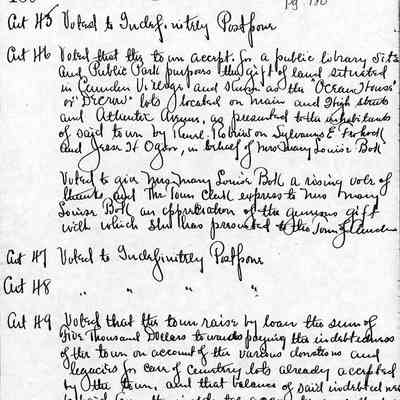 pg. 180
Art 45 Voted to Indefinitely Postpone
Art 46 Voted that the town accept for a public library site
and Public Park purposes the gift of land situated
in Camden Village and known as the "Ocean House"
or lots located on Main and High streets
and Atlantic Avenue, as presented to the inhabitants
of said town by Sylvanus E
and Jesse H Ogier, in behalf of Mrs Mary Louise Bok
Voted to give Mrs Mary Louise Bok a rising vote of
thanks and The Town Clerk express to Mrs Mary
Louise Bok an appreciation of the generous gift
with which she has presented to the Town of Camden
Art 47 Voted to Indefinitely Postpone
Art 48 " " "
Art 49 Voted that the town raise by loan the sum of
Five Thousand Dollars towards paying the indebtedness
of the town on account of the various donations and
legacies for care of cemetery lots already accepted
by the town, and that balance of said indebtedness